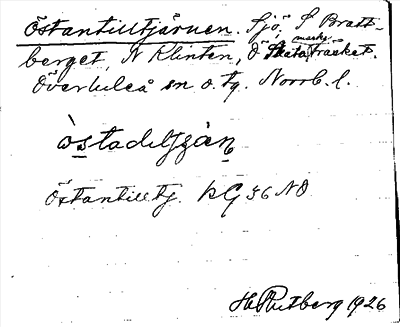 Östantilltjärnen. Sjö. S Bratt-
berget, N Klinten, Ö Skata marks träsket.
Överluleå sn o. tg. Norrb. l.
östadiltjän
Östantilltj. kG 36 NO
H. Rutberg 1926